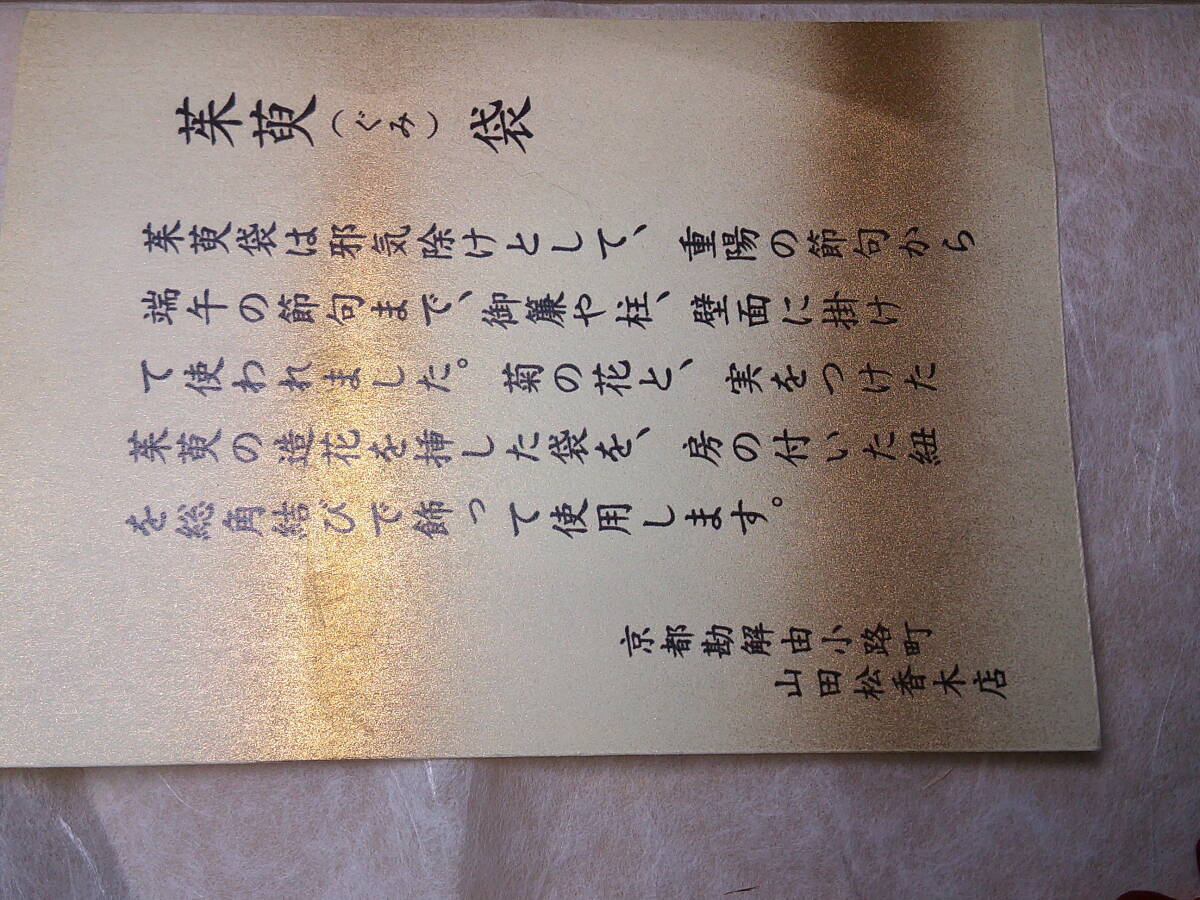 茱萸(ぐみ)袋
茱萸袋は邪気除けとして、重陽の節句から
端午の節句まで、御簾や柱、壁面に掛け
て使われました。菊の花と、実をつけた
茱萸の造花を挿した袋を、房の付いた紐
を総角結びで飾って使用します。
京都勘解由小路町
山田松香木店